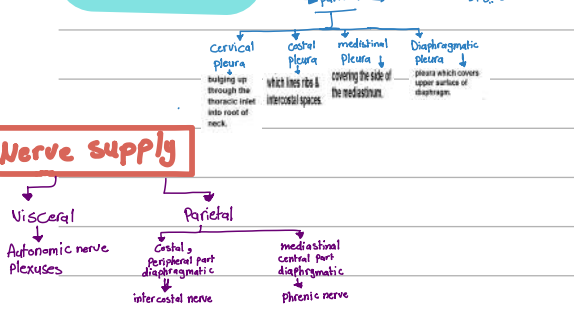 Cervical
pleura
bulging up
through the
thoracic inlet
into root of
neck.
costal
pleura
which lines ribs &
intercostal spaces.
medistinal
Pleura
covering the side of
the mediastinum.
Diaphragmatic
pleura
pleura which covers
upper surface of
diaphragm.
Nerve supply
Visceral
Autonomic nerve
plexuses
Parietal
Costal,
Peripheral part
diaphragmatic
intercostal nerve
mediastinal
central part
diaphrgmatic
Phrenic nerve